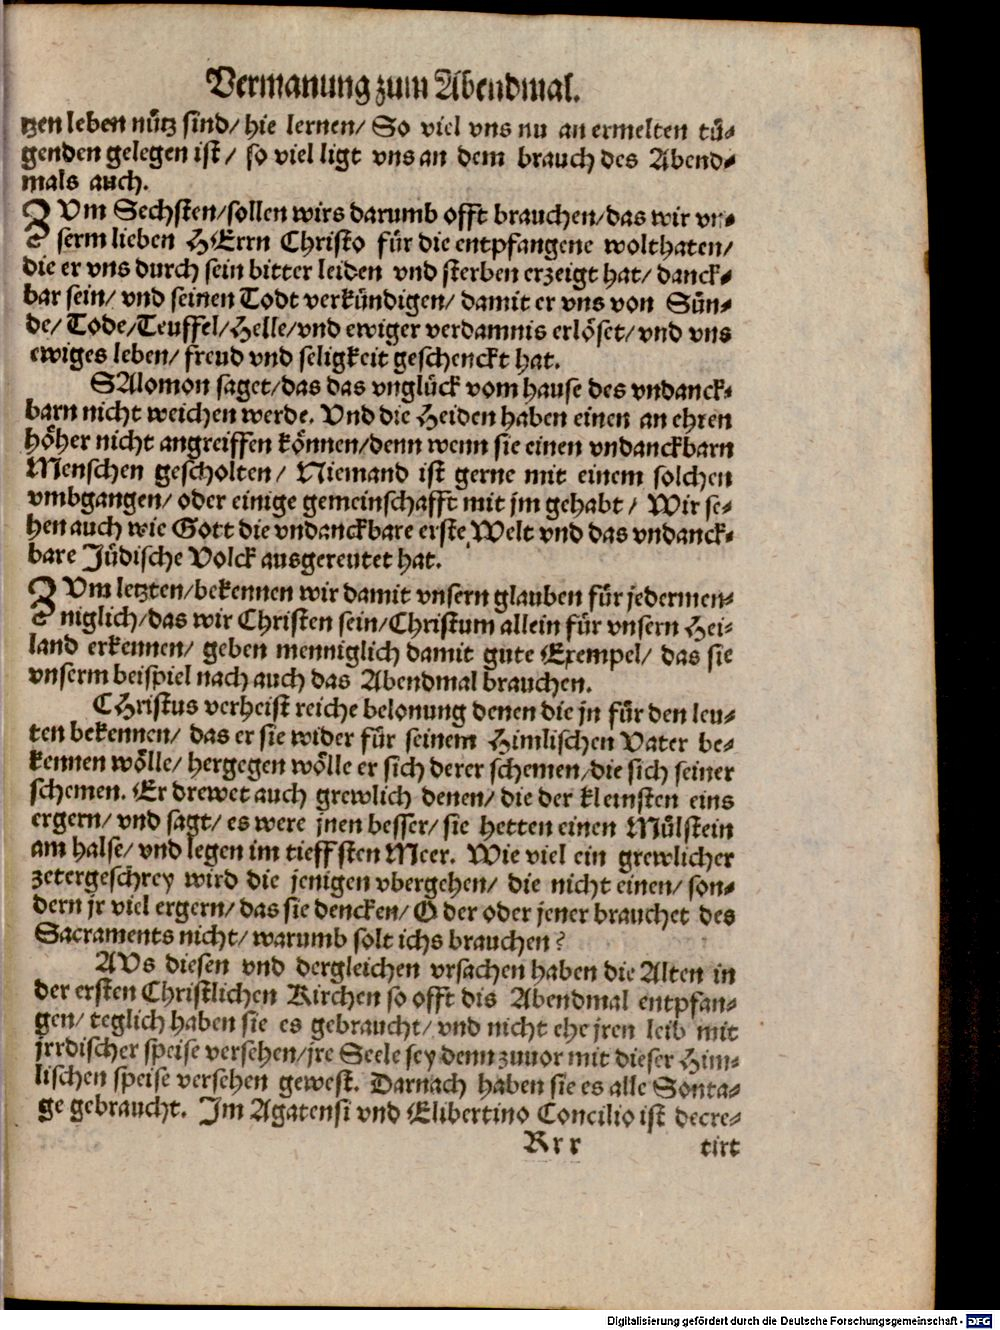 Vermanung zum Abendmal.
tzen leben nütz sind/ hie lernen/ So viel vns nu an ermelten tü-
genden gelegen ist/ so viel ligt vns an dem brauch des Abend-
mals auch.
ZVm Sechsten/sollen wirs darumb offt brauchen/das wir vn-
serm lieben HErrn Christo für die entpfangene wolthaten/
die er vns durch sein bitter leiden vnd sterben erzeigt hat/ danck-
bar sein/ vnd seinen Todt verkündigen/ damit er vns von Sün-
de/ Tode/Teuffel/Helle/vnd ewiger verdamnis erlöset/ vnd vns
ewiges leben/ freud vnd seligkeit geschenckt hat.
SAlomon saget/das das vnglück vom hause des vndanck-
barn nicht weichen werde. Vnd die Heiden haben einen an ehren
höher nicht angreiffen können/denn wenn sie einen vndanckbarn
Menschen gescholten/ Niemand ist gerne mit einem solchen
vmbgangen/ oder einige gemeinschafft mit jm gehabt/ Wir se-
hen auch wie Gott die vndanckbare erste Welt vnd das vndanck-
bare Jüdische Volck ausgereutet hat.
ZVm letzten/bekennen wir damit vnsern glauben für jedermen-
niglich/das wir Christen sein/Christum allein für vnsern Hei-
land erkennen/ geben menniglich damit gute Exempel/ das sie
vnserm beispiel nach auch das Abendmal brauchen.
CHristus verheist reiche belonung denen die jn für den leu-
ten bekennen/ das er sie wider für seinem Himlischen Vater be-
kennen wölle/ hergegen wölle er sich derer schemen/die sich seiner
schemen. Er drewet auch grewlich denen/ die der kleinsten eins
ergern/ vnd sagt/ es were jnen besser/ sie hetten einen Mülstein
am halse/ vnd legen im tieffsten Meer. Wie viel ein grewlicher
zetergeschrey wird die jenigen vbergehen/ die nicht einen/ son-
dern jr viel ergern/ das sie dencken/ O der oder jener brauchet des
Sacraments nicht/ warumb solt ichs brauchen?
AVs diesen vnd dergleichen vrsachen haben die Alten in
der ersten Christlichen Kirchen so offt dis Abendmal entpfan-
gen/ teglich haben sie es gebraucht/ vnd nicht ehe jren leib mit
jrrdischer speise versehen/jre Seele sey denn zuuor mit dieser Him-
lischen speise versehen gewest. Darnach haben sie es alle Sonta-
ge gebraucht. Im Agatensi vnd Elibertino Concilio ist decre-
Rrr tirt
Digitalisierung gefördert durch die Deutsche Forschungsgemeinschaft - DFG